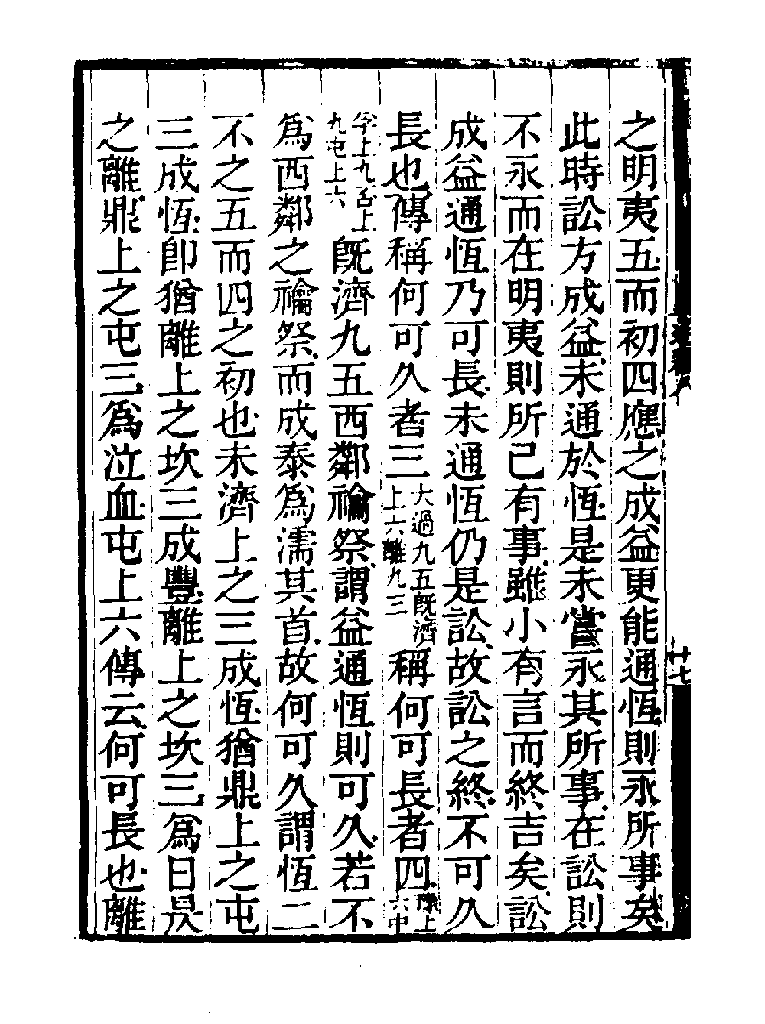 之明夷五而初四應之成益更能通恆則永所事矣
此時訟方成益未通於恆是未嘗永其所事在訟則
不永而在明夷則所已有事雖小有言而終吉矣訟
成益通恆乃可長未通恆仍是訟故訟之終不可久
長也傳稱何可久者三大過九五既濟上六離九三稱何可長者四豫上六中
孚上九否上九屯上六既濟九五西鄰禴祭謂益通恆則可久若不
為西鄰之禴祭而成泰為濡其首故何可久謂恆二
不之五而四之初也未濟上之三成恆猶鼎上之屯
三成恆卽猶離上之坎三成豐離上之坎三為日昃
之離鼎上之屯三為泣血屯上六傳云何可長也離
廿七